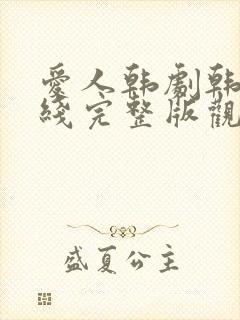 愛人韩劇韩
綫完整版觀
盛夏公主